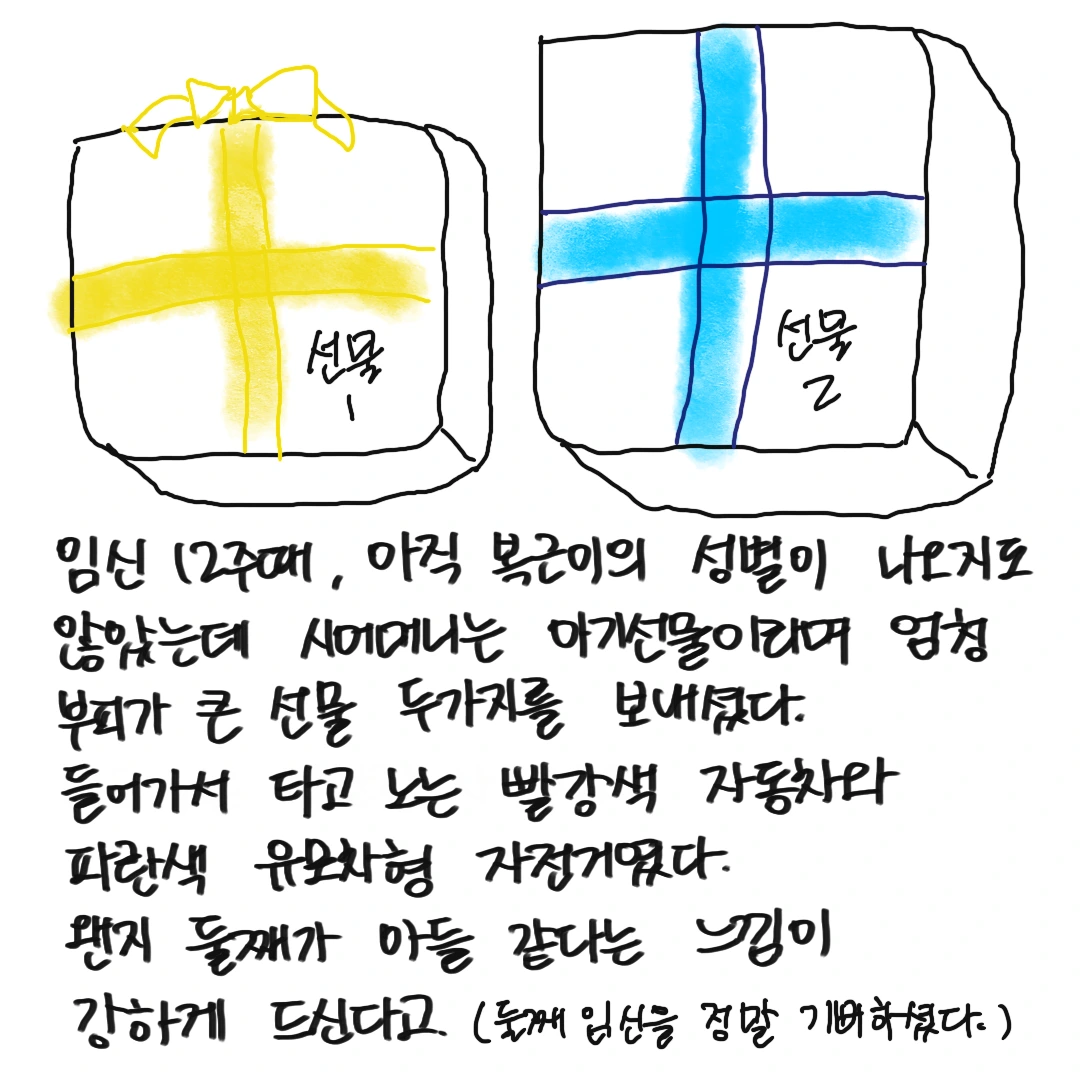 선물
1
선물
2
임신 12주때, 아직 복근이의 성별이 나오지도
않았는데 시어머니는 아기선물이라며 엄청
부피가 큰 선물 두가지를 보내셨다.
들어가서 타고 노는 빨강색 자동차와
파란색 유모차형 자전거였다.
왠지 둘째가 아들 같다는 느낌이
강하게 드신다고. (둘째 임신을 정말 기뻐하셨다.)